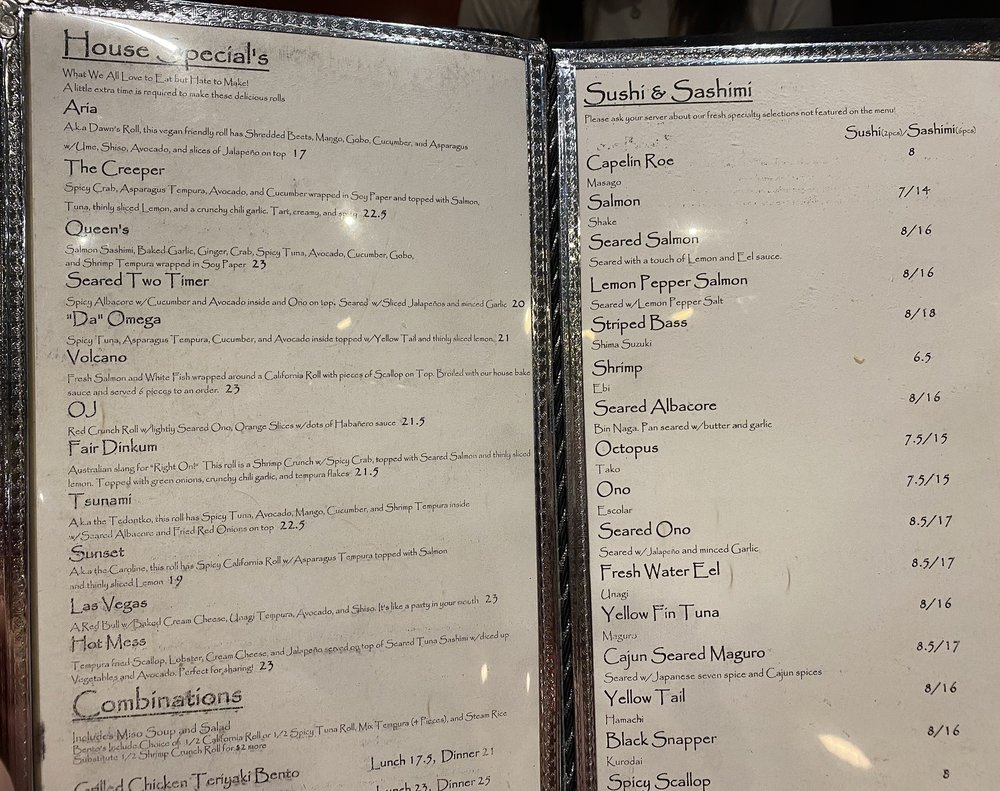 House Special's
What We All Love to Eat but Hate to Make!
A little extra time is required to make these delicious rolls
Aria
A.k.a Dawn's Roll, this vegan friendly roll has Shredded Beets, Mango, Gobo, Cucumber, and Asparagus
w/Ume, Shiso, Avocado, and slices of Jalapeño on top 17
The Creeper
Spicy Crab, Asparagus Tempura, Avocado, and Cucumber wrapped in Soy Paper and topped with Salmon,
Tuna, thinly sliced Lemon, and a crunchy chili garlic. Tart, creamy, and spicy 22.5
Queen's
Salmon Sashimi, Baked Garlic, Ginger, Crab, Spicy Tuna, Avocado, Cucumber, Gobo,
and Shrimp Tempura wrapped in Soy Paper 23
Seared Two Timer
Spicy Albacore w/Cucumber and Avocado inside and Ono on top. Seared w/Sliced Jalapeños and minced Garlic 20
"Da" Omega
Spicy Tuna, Asparagus Tempura, Cucumber, and Avocado inside topped w/Yellow Tail and thinly sliced lemon. 21
Volcano
Fresh Salmon and White Fish wrapped around a California Roll with pieces of Scallop on Top. Broiled with our house bake
sauce and served 6 pieces to an order. 23
OJ
Red Crunch Roll w/lightly Seared Ono, Orange Slices w/dots of Habañero sauce 21.5
Fair Dinkum
Australian slang for "Right On!" This roll is a Shrimp Crunch w/Spicy Crab, topped with Seared Salmon and thinly sliced
lemon. Topped with green onions, crunchy chili garlic, and tempura flakes 21.5
Tsunami
A.k.a the Tedontko, this roll has Spicy Tuna, Avocado, Mango, Cucumber, and Shrimp Tempura inside
w/Seared Albacore and Fried Red Onions on top 22.5
Sunset
A.k.a the Caroline, this roll has Spicy California Roll w/Asparagus Tempura topped with Salmon
and thinly sliced Lemon 19
Las Vegas
A Red Bull w/Baked Cream Cheese, Unagi Tempura, Avocado, and Shiso. It's like a party in your mouth 23
Hot Mess
Tempura fried Scallop, Lobster, Cream Cheese, and Jalapeño served on top of Seared Tuna Sashimi w/diced up
Vegetables and Avocado. Perfect for sharing! 23
Combinations
Include's Miso Soup and Salad
Bento's Include Choice of 1/2 California Roll or 1/2 Spicy Tuna Roll, Mix Tempura (4 Pieces), and Steam Rice
Substitute 1/2 Shrimp Crunch Roll for $2 more
Lunch 17.5, Dinner 21
Grilled Chicken Teriyaki Bento
Lunch 23, Dinner 25
Sushi & Sashimi
Please ask your server about our fresh specialty selections not featured on the menu!
Sushi(2pcs)/Sashimi(6pcs)
Capelin Roe 8
Masago
Salmon 7/14
Shake
Seared Salmon 8/16
Seared with a touch of Lemon and Eel sauce.
Lemon Pepper Salmon 8/16
Seared w/Lemon Pepper Salt
Striped Bass 8/18
Shima Suzuki
Shrimp 6.5
Ebi
Seared Albacore 8/16
Bin Naga. Pan seared w/butter and garlic
Octopus 7.5/15
Tako
Ono 7.5/15
Escolar
Seared Ono 8.5/17
Seared w/Jalapeño and minced Garlic
Fresh Water Eel 8.5/17
Unagi
Yellow Fin Tuna 8/16
Maguro
Cajun Seared Maguro 8.5/17
Seared w/Japanese seven spice and Cajun spices
Yellow Tail 8/16
Hamachi
Black Snapper 8/16
Kurodai
Spicy Scallop 8